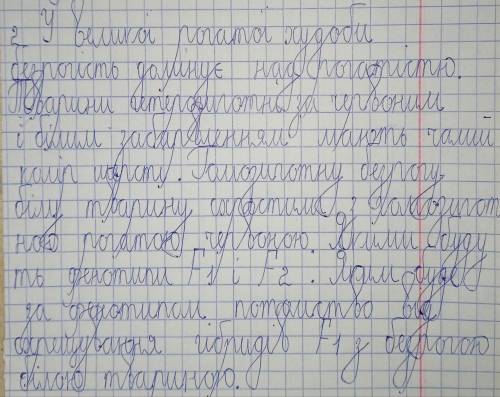 2. У великої рогатої худоби
безрогість домінує над рогатістю.
Тварини гетерозиготні за червоним
і білим забарвленням мають чалий
колір шерсту. Гомозиготну безрогу
білу тварину схрестили з гомозигот
ною рогатою червоною. Якими буду
ть фенотипи F1 і F2. Яким буде
за фенотипом потомство від
схрещування гібридів F1 з безрогою
білою твариною.